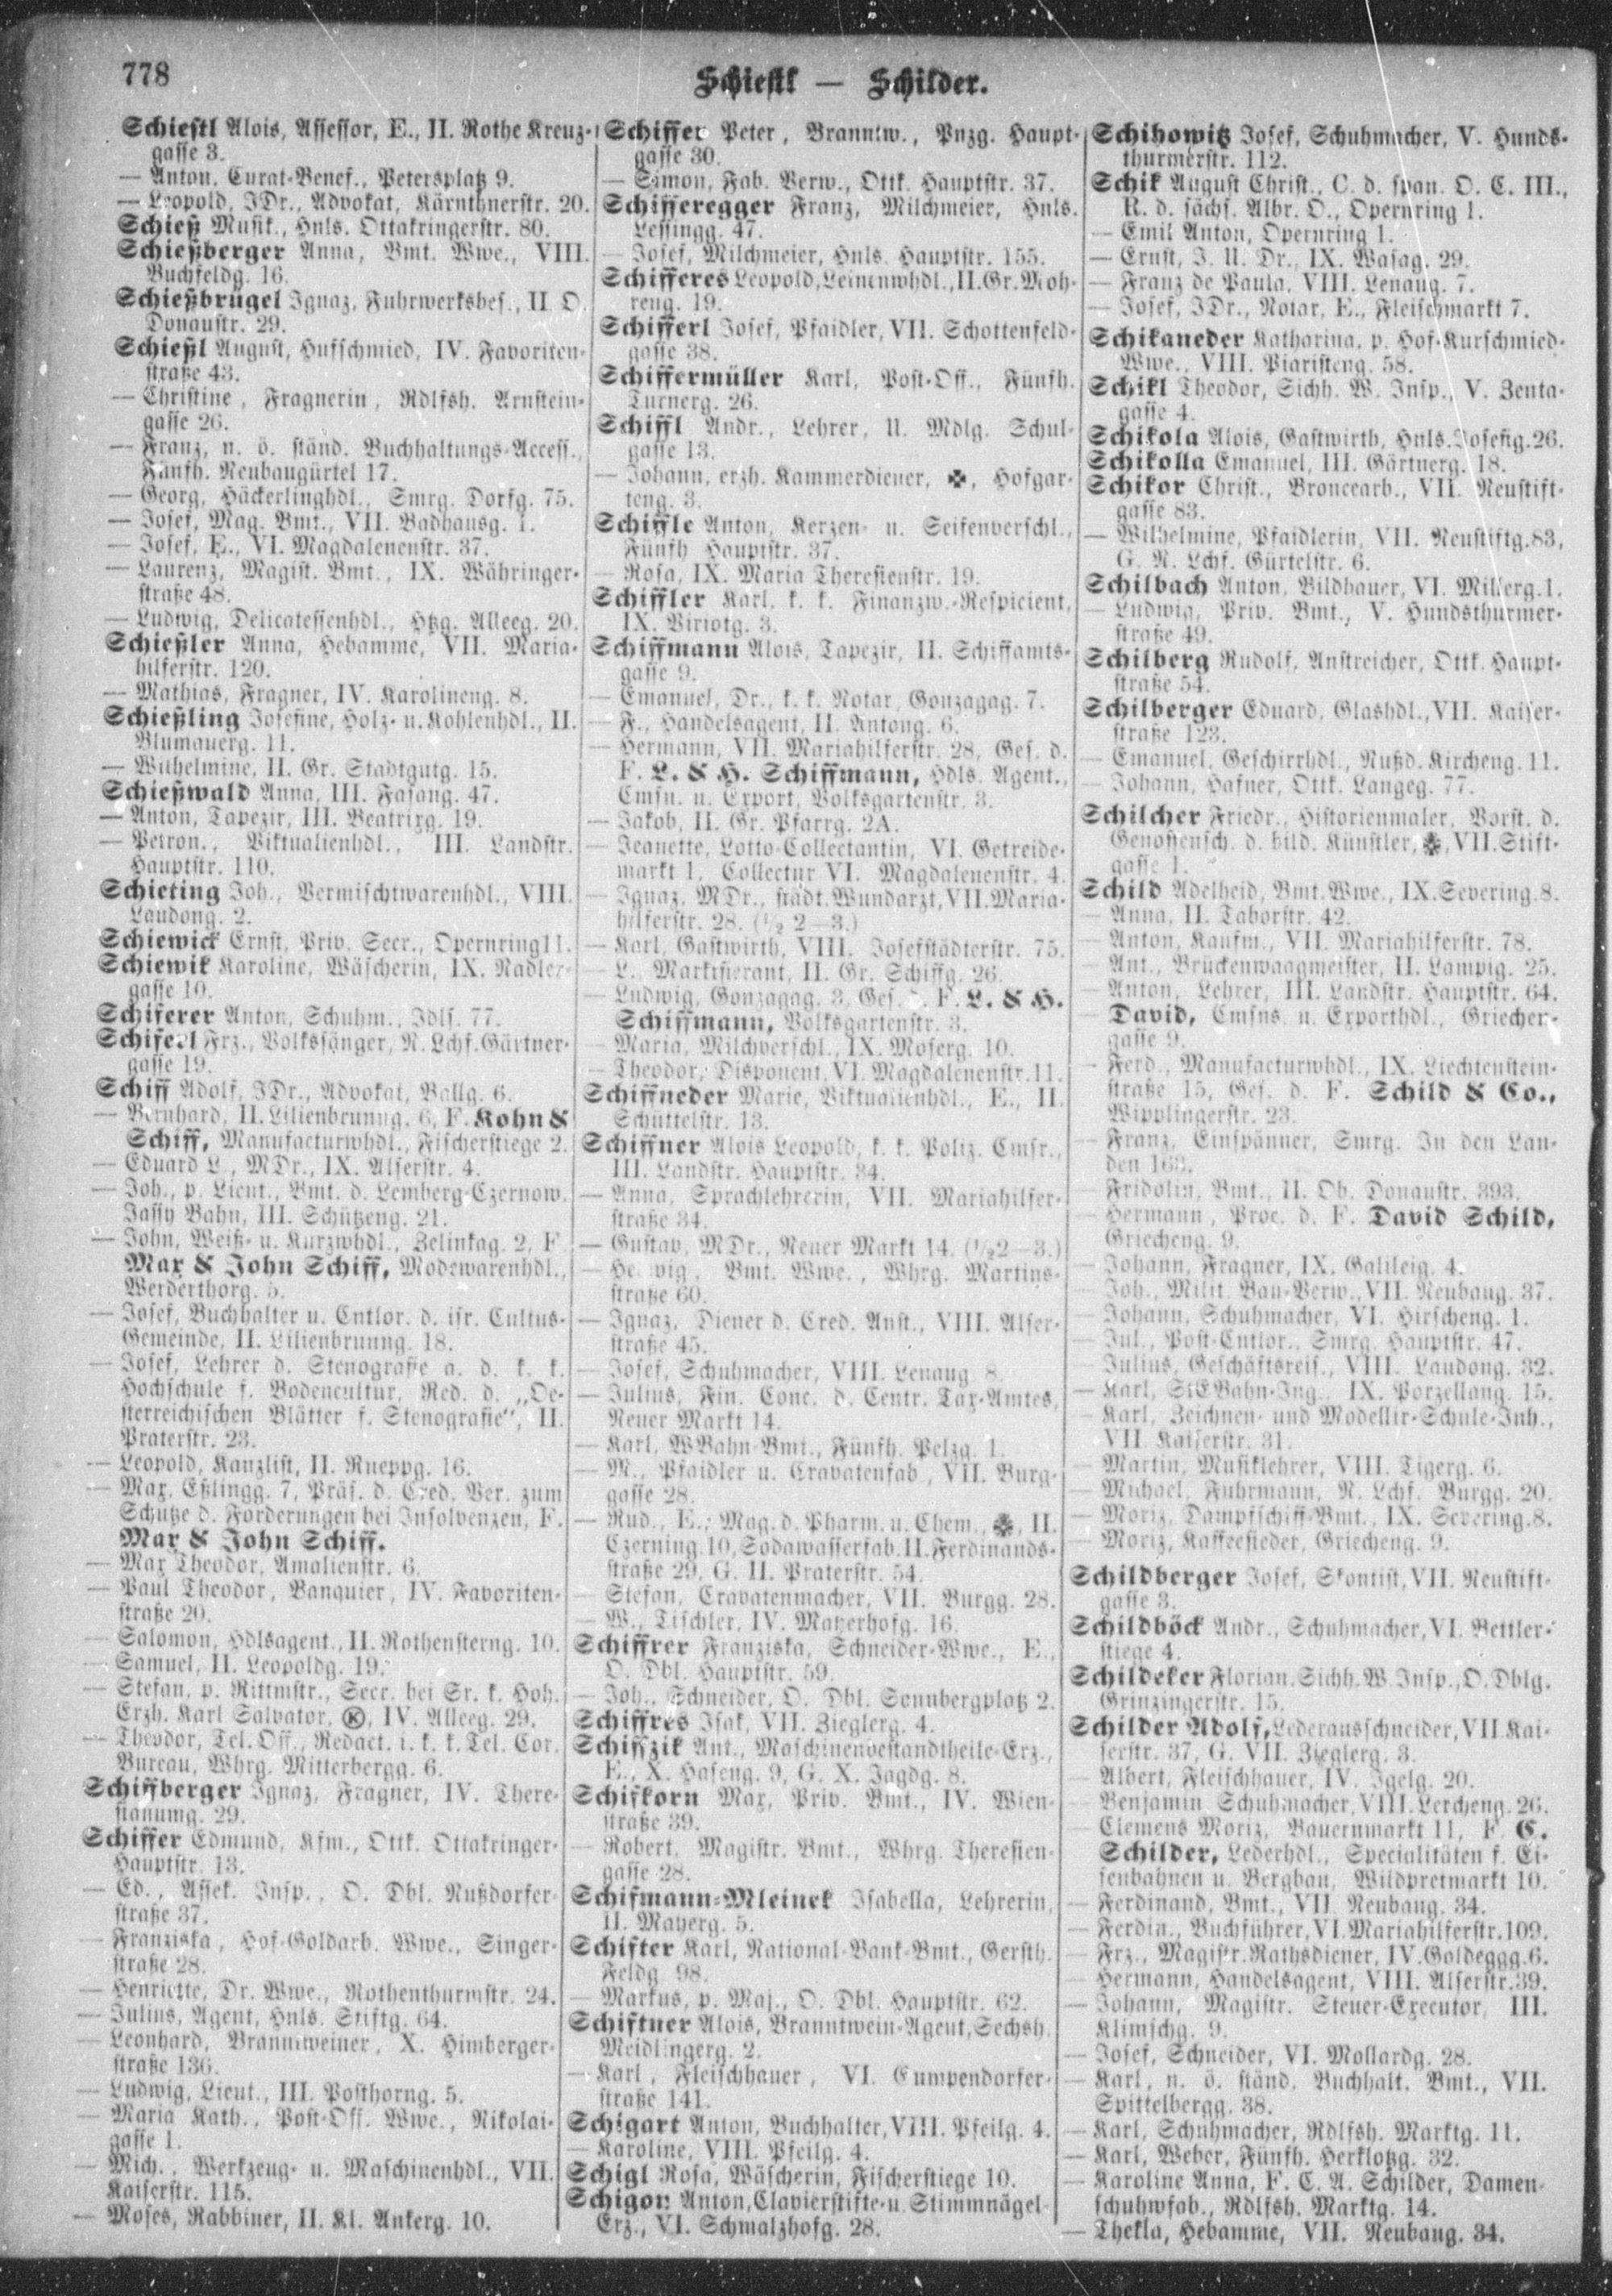 778
Schiestl — Schilder.
Schiestl Alois, Assessor, E., II. Rothe Kreuz-
gasse 3.
— Anton, Curat-Benef., Petersplatz 9.
— Leopold, JDr., Advokat, Kärnthnerstr. 20.
Schieß Musik., Hnls. Ottakringerstr. 80.
Schießberger Anna, Bmt. Wwe., VIII.
Buchfeldg. 16.
Schießbrügel Ignaz, Fuhrwerksbes., II. O.
Donaustr. 29.
Schießl August, Hufschmied, IV. Favoriten-
straße 43.
— Christine, Fragnerin, Rdlfsh. Arnstein-
gasse 26.
— Franz, n. ö. ständ. Buchhaltungs-Access.,
Fünfh. Neubaugürtel 17.
— Georg, Häckerlinghdl., Smrg. Dorfg. 75.
— Josef, Mag. Bmt., VII. Badhausg. 1.
— Josef, E., VI. Magdalenenstr. 37.
— Laurenz, Magist. Bmt., IX. Währinger-
straße 48.
— Ludwig, Delicatessenhdl., Htzg. Alleeg. 20.
Schießler Anna, Hebamme, VII. Maria-
hilferstr. 120.
— Mathias, Fragner, IV. Karolineng. 8.
Schießling Josefine, Holz- u. Kohlenhdl., II.
Blumauerg. 11.
— Wilhelmine, II. Gr. Stadtgutg. 15.
Schießwald Anna, III. Fasang. 47.
— Anton, Tapezir, III. Beatrixg. 19.
— Petron., Viktualienhdl., III. Landstr.
Hauptstr. 110.
Schieting Joh., Vermischtwarenhdl., VIII.
Laudong. 2.
Schiewick Ernst, Priv. Secr., Opernring 11.
Schiewik Karoline, Wäscherin, IX. Nadler-
gasse 10.
Schiferer Anton, Schuhm., Jdls. 77.
Schiferl Frz., Volkssänger, N. Lchf. Gärtner-
gasse 19.
Schiff Adolf, JDr., Advokat, Ballg. 6.
— Bernhard, II. Lilienbrunng. 6, F. Kohn &
Schiff, Manufacturwhdl., Fischerstiege 2.
— Eduard L., MDr., IX. Alserstr. 4.
— Joh., p. Lieut., Bmt. d. Lemberg-Czernow.
Jassy Bahn, III. Schützeng. 21.
— John, Weiß- u. Kurzwhdl., Zelinkag. 2, F.
Max & John Schiff, Modewarenhdl.,
Werderthorg. 5.
— Josef, Buchhalter u. Cntlor. d. isr. Cultus-
Gemeinde, II. Lilienbrunng. 18.
— Josef, Lehrer d. Stenografie a. d. k. k.
Hochschule f. Bodencultur, Red. d. „Oe-
sterreichischen Blätter f. Stenografie“, II.
Praterstr. 23.
— Leopold, Kanzlist, II. Rueppg. 16.
— Max, Eßlingg. 7, Präs. d. Cred. Ver. zum
Schutze d. Forderungen bei Insolvenzen, F.
Max & John Schiff.
— Max Theodor, Amalienstr. 6.
— Paul Theodor, Banquier, IV. Favoriten-
straße 20.
— Salomon, Hdlsagent., II. Rothensterng. 10.
— Samuel, II. Leopoldg. 19.
— Stefan, p. Rittmstr., Secr. bei Sr. k. Hoh.
Erzh. Karl Salvator, Ⓚ, IV. Alleeg. 29.
— Theodor, Tel. Off., Redact. i. k. k. Tel. Cor.
Bureau, Whrg. Mitterbergg. 6.
Schiffberger Ignaz, Fragner, IV. There-
sianumg. 29.
Schiffer Edmund, Kfm., Ottk. Ottakringer-
Hauptstr. 13.
— Ed., Assek. Insp., O. Dbl. Nußdorfer-
straße 37.
— Franziska, Hof-Goldarb. Wwe., Singer-
straße 28.
— Henriette, Dr. Wwe., Rothenthurmstr. 24.
— Julius, Agent, Hnls. Stiftg. 64.
— Leonhard, Branntweiner, X. Himberger-
straße 136.
— Ludwig, Lieut., III. Posthorng. 5.
— Maria Kath., Post-Off. Wwe., Nikolai-
gasse 1.
— Mich., Werkzeug- u. Maschinenhdl., VII.
Kaiserstr. 115.
— Moses, Rabbiner, II. Kl. Ankerg. 10.
Schiffer Peter, Branntw., Pnzg. Haupt-
gasse 30.
— Simon, Fab. Verw., Ottk. Hauptstr. 37.
Schifferegger Franz, Milchmeier, Hnls.
Lessingg. 47.
— Josef, Milchmeier, Hnls. Hauptstr. 155.
Schifferes Leopold, Leinenwhdl., II. Gr. Moh-
reng. 19.
Schifferl Josef, Pfaidler, VII. Schottenfeld-
gasse 38.
Schiffermüller Karl, Post-Off., Fünfh.
Turnerg. 26.
Schiffl Andr., Lehrer, U. Mdlg. Schul-
gasse 13.
— Johann, erzh. Kammerdiener, ✠, Hofgar-
teng. 3.
Schiffle Anton, Kerzen- u. Seifenverschl.,
Fünfh. Hauptstr. 37.
— Rosa, IX. Maria Theresienstr. 19.
Schiffler Karl, k. k. Finanzw.-Respicient,
IX. Viriotg. 3.
Schiffmann Alois, Tapezir, II. Schiffamts-
gasse 9.
— Emanuel, Dr., k. k. Notar, Gonzagag. 7.
— F., Handelsagent, II. Antong. 6.
— Hermann, VII. Mariahilferstr. 28, Ges. d.
F. L. & H. Schiffmann, Hdls. Agent.,
Cmsn. u. Export, Volksgartenstr. 3.
— Jakob, II. Gr. Pfarrg. 2A.
— Jeanette, Lotto-Collectantin, VI. Getreide-
markt 1, Collectur VI. Magdalenenstr. 4.
— Ignaz, MDr., städt. Wundarzt, VII. Maria-
hilferstr. 28. (½ 2—3.)
— Karl, Gastwirth, VIII. Josefstädterstr. 75.
— L., Marktfierant, II. Gr. Schiffg. 26.
— Ludwig, Gonzagag. 3, Ges. F. L. & H.
Schiffmann, Volksgartenstr. 3.
— Maria, Milchverschl., IX. Moserg. 10.
— Theodor, Disponent, VI. Magdalenenstr. 11.
Schiffneder Marie, Viktualienhdl., E., II.
Schüttelstr. 13.
Schiffner Alois Leopold, k. k. Poliz. Cmsr.,
III. Landstr. Hauptstr. 34.
— Anna, Sprachlehrerin, VII. Mariahilfer-
straße 34.
— Gustav, MDr., Neuer Markt 14. (½2—3.)
— Hedwig, Bmt. Wwe., Whrg. Martins-
straße 60.
— Ignaz, Diener d. Cred. Anst., VIII. Alser-
straße 45.
— Josef, Schuhmacher, VIII. Lenaug. 8.
— Julius, Fin. Conc. d. Centr. Tax-Amtes,
Neuer Markt 14.
— Karl, WBahn-Bmt., Fünfh. Pelzg. 1.
— M., Pfaidler u. Cravatenfab., VII. Burg-
gasse 28.
— Rud., E., Mag. d. Pharm. u. Chem., II.
Czerning. 10, Sodawasserfab. II. Ferdinands-
straße 29, G. II. Praterstr. 54.
— Stefan, Cravatenmacher, VII. Burgg. 28.
— W., Tischler, IV. Mayerhofg. 16.
Schiffrer Franziska, Schneider-Wwe., E.,
O. Dbl. Hauptstr. 59.
— Joh., Schneider, O. Dbl. Sonnbergplatz 2.
Schiffres Isak, VII. Zieglerg. 4.
Schiffzik Ant., Maschinenbestandtheile-Erz.,
E., X. Haseng. 9, G. X. Jagdg. 8.
Schifkorn Max, Priv. Bmt., IV. Wien-
straße 39.
— Robert, Magistr. Bmt., Whrg. Theresien-
gasse 28.
Schifmann-Mleinek Isabella, Lehrerin,
II. Mayerg. 5.
Schifter Karl, National-Bank-Bmt., Gersth.
Feldg. 98.
— Markus, p. Maj., O. Dbl. Hauptstr. 62.
Schiftner Alois, Branntwein-Agent, Sechsh.
Meidlingerg. 2.
— Karl, Fleischhauer, VI. Gumpendorfer-
straße 141.
Schigart Anton, Buchhalter, VIII. Pfeilg. 4.
— Karoline, VIII. Pfeilg. 4.
Schigl Rosa, Wäscherin, Fischerstiege 10.
Schigon Anton, Clavierstifte- u. Stimmnägel-
Erz., VI. Schmalzhofg. 28.
Schihowitz Josef, Schuhmacher, V. Hunds-
thurmerstr. 112.
Schik August Christ., C. d. span. O. C. III.,
R. d. sächs. Albr. O., Opernring 1.
— Emil Anton, Opernring 1.
— Ernst, J. U. Dr., IX. Wasag. 29.
— Franz de Paula, VIII. Lenaug. 7.
— Josef, JDr., Notar, E., Fleischmarkt 7.
Schikaneder Katharina, p. Hof-Kurschmied-
Wwe., VIII. Piaristeng. 58.
Schikl Theodor, Sichh. W. Insp., V. Zenta-
gasse 4.
Schikola Alois, Gastwirth, Hnls. Josefig. 26.
Schikolla Emanuel, III. Gärtnerg. 18.
Schikor Christ., Broncearb., VII. Neustift-
gasse 83.
— Wilhelmine, Pfaidlerin, VII. Neustiftg. 83,
G. N. Lchf. Gürtelstr. 6.
Schilbach Anton, Bildhauer, VI. Millerg. 1.
— Ludwig, Priv. Bmt., V. Hundsthurmer-
straße 49.
Schilberg Rudolf, Anstreicher, Ottk. Haupt-
straße 54.
Schilberger Eduard, Glashdl., VII. Kaiser-
straße 123.
— Emanuel, Geschirrhdl., Nußd. Kircheng. 11.
— Johann, Hafner, Ottk. Langeg. 77.
Schilcher Friedr., Historienmaler, Vorst. d.
Genossensch. d. bild. Künstler, VII. Stift-
gasse 1.
Schild Adelheid, Bmt. Wwe., IX. Severing. 8.
— Anna, II. Taborstr. 42.
— Anton, Kaufm., VII. Mariahilferstr. 78.
— Ant., Brückenwaagmeister, II. Lampig. 25.
— Anton, Lehrer, III. Landstr. Hauptstr. 64.
— David, Cmsns. u. Exporthdl., Griechen-
gasse 9.
— Ferd., Manufacturwhdl., IX. Liechtenstein-
straße 15, Ges. d. F. Schild & Co.,
Wipplingerstr. 23.
— Franz, Einspänner, Smrg. In den Lan-
den 163.
— Fridolin, Bmt., II. Ob. Donaustr. 393.
— Hermann, Proc. d. F. David Schild,
Griecheng. 9.
— Johann, Fragner, IX. Galileig. 4.
— Joh., Milit. Bau-Verw., VII. Neubaug. 37.
— Johann, Schuhmacher, VI. Hirscheng. 1.
— Jul., Post-Cntlor., Smrg. Hauptstr. 47.
— Julius, Geschäftsreis., VIII. Laudong. 32.
— Karl, StEBahn-Ing., IX. Porzellang. 15.
— Karl, Zeichnen- und Modellir-Schule-Inh.,
VII. Kaiserstr. 31.
— Martin, Musiklehrer, VIII. Tigerg. 6.
— Michael, Fuhrmann, N. Lchf. Burgg. 20.
— Moriz, Dampfschiff-Bmt., IX. Severing. 8.
— Moriz, Kaffeesieder, Griecheng. 9.
Schildberger Josef, Skontist, VII. Neustift-
gasse 3.
Schildböck Andr., Schuhmacher, VI. Bettler-
stiege 4.
Schildeker Florian, Sichh. W. Insp., O. Dblg.
Grinzingerstr. 15.
Schilder Adolf, Lederausschneider, VII. Kai-
serstr. 37, G. VII. Zieglerg. 3.
— Albert, Fleischhauer, IV. Igelg. 20.
— Benjamin, Schuhmacher, VIII. Lercheng. 26.
— Clemens Moriz, Bauernmarkt 11, F. C.
Schilder, Lederhdl., Specialitäten f. Ei-
senbahnen u. Bergbau, Wildpretmarkt 10.
— Ferdinand, Bmt., VII. Neubaug. 34.
— Ferdin., Buchführer, VI. Mariahilferstr. 109.
— Frz., Magistr. Rathsdiener, IV. Goldeggg. 6.
— Hermann, Handelsagent, VIII. Alserstr. 39.
— Johann, Magistr. Steuer-Executor, III.
Klimschg. 9.
— Josef, Schneider, VI. Mollardg. 28.
— Karl, n. ö. ständ. Buchhalt. Bmt., VII.
Spittelbergg. 38.
— Karl, Schuhmacher, Rdlfsh. Marktg. 11.
— Karl, Weber, Fünfh. Herklotzg. 32.
— Karoline Anna, F. C. A. Schilder, Damen-
schuhwfab., Rdlfsh. Marktg. 14.
— Thekla, Hebamme, VII. Neubaug. 34.